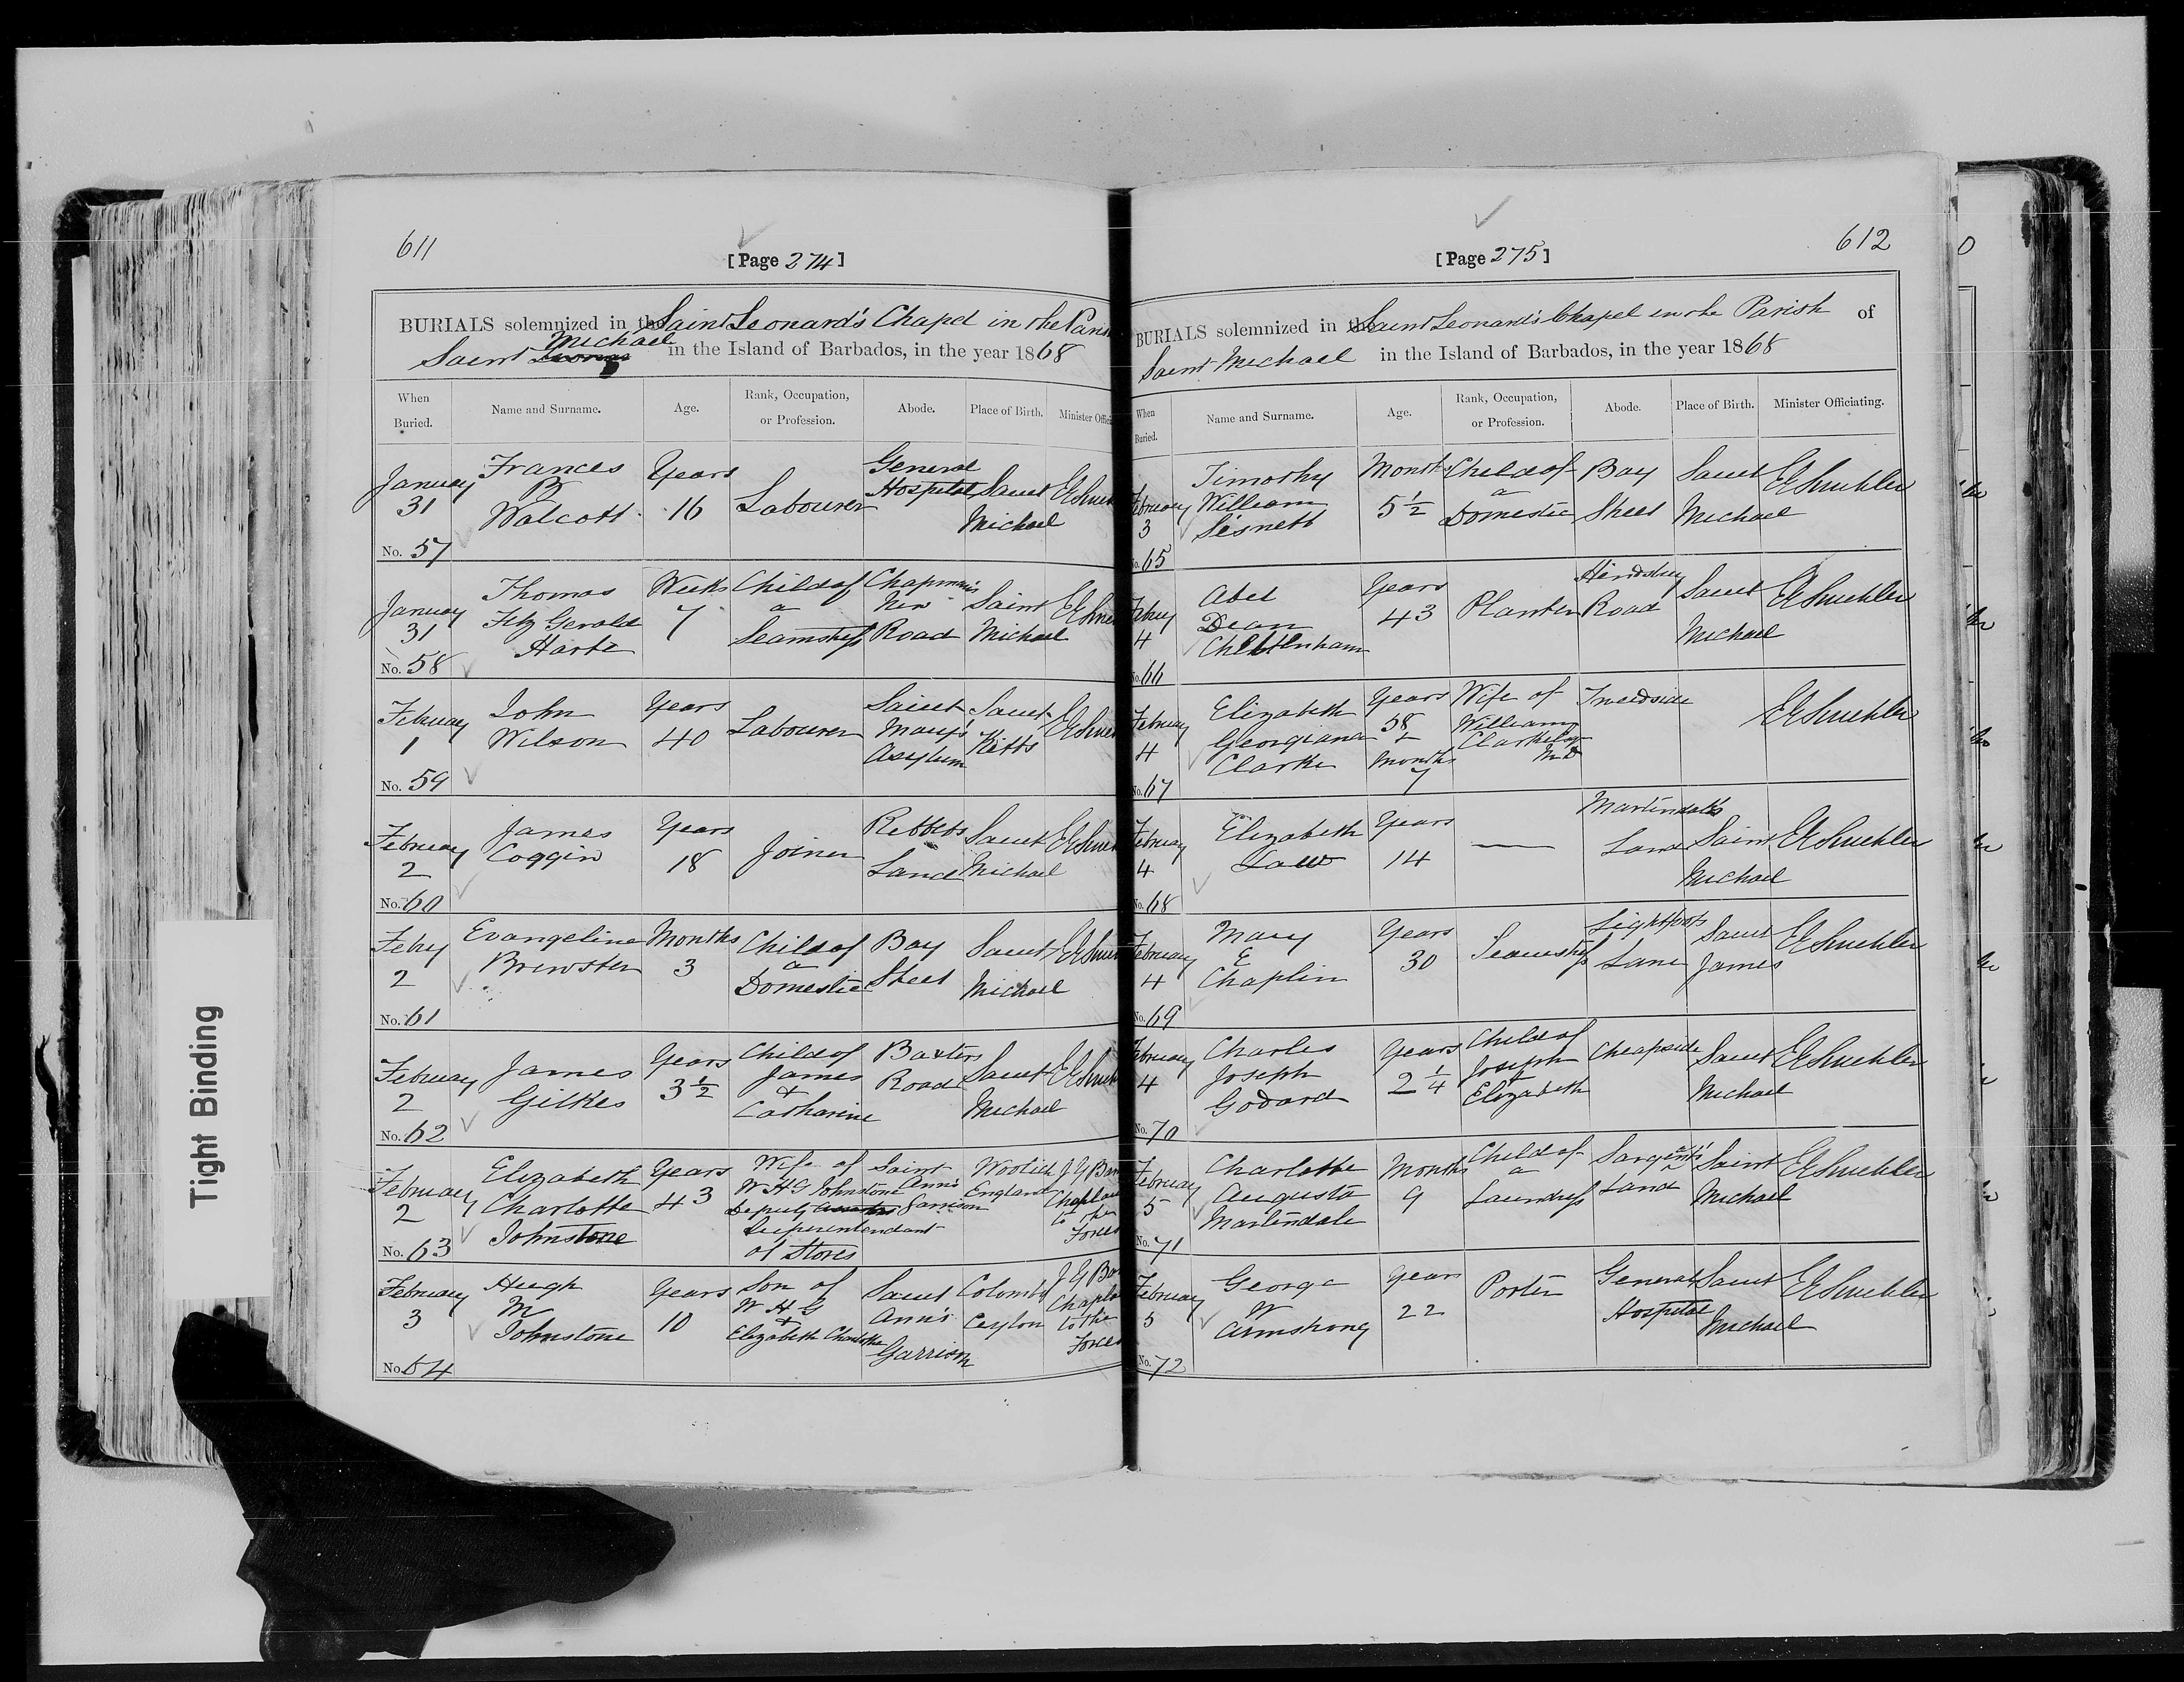 Tight Binding
611
[Page 274]
BURIALS solemnized in the Saint Leonard's Chapel in the Paris
Saint Michael in the Island of Barbados, in the year 1868
When Buried. Name and Surname. Age. Rank, Occupation, or Profession. Abode. Place of Birth. Minister Offici
January 31 No. 57 Frances B Walcott Years 16 Labourer General Hospital Saint Michael
January 31 No. 58 Thomas Fitz Gerald Harte Weeks 7 Child of a Seamstress Chapman's New Road Saint Michael
February 1 No. 59 John Wilson Years 40 Labourer Saint Mary's Asylum Saint Kitts
February 2 No. 60 James Coggin Years 18 Joiner Land Saint Michael
Feby 2 No. 61 Evangeline Brewster Months 3 Child of a Domestic Bay Street Saint Michael
February 2 No. 62 James Gilkes Years 3½ Child of James & Catharine Baxters Road Saint Michael
February 2 No. 63 Elizabeth Charlotte Johnstone Years 43 Wife of W H G Johnstone Deputy Superintendant of Stores Saint Ann's Garrison Woolich England J G Chaplain to the Forces
February 3 No. 64 Hugh M Johnstone Years 10 Son of W H G & Elizabeth Charlotte Saint Ann's Garrison Colombo Ceylon J G Chapla to the Forces
612
[Page 275]
BURIALS solemnized in the Saint Leonard's Chapel in the Parish of
Saint Michael in the Island of Barbados, in the year 1868
When Buried. Name and Surname. Age. Rank, Occupation, or Profession. Abode. Place of Birth. Minister Officiating.
February 3 No. 65 Timothy William Sisnett Months 5½ Child of a Domestic Bay Street Saint Michael
Feby 4 No. 66 Abel Dean Cheltenham Years 43 Planter Hindsbury Road Saint Michael
February 4 No. 67 Elizabeth Georgiana Clarke Years 58 & Months 7 Wife of William Clarke MD Tweedside
February 4 No. 68 Elizabeth Law Years 14 — Martindale's Land Saint Michael
February 4 No. 69 Mary E Chaplin Years 30 Seamstress Lightfoots Lane Saint James
February 4 No. 70 Charles Joseph Godard Years 2¼ Child of Joseph & Elizabeth Cheapside Saint Michael
February 5 No. 71 Charlotte Augusta Martindale Months 9 Child of a Laundress Sargeant's Land Saint Michael
February 5 No. 72 George W Armstrong Years 22 Porter General Hospital Saint Michael